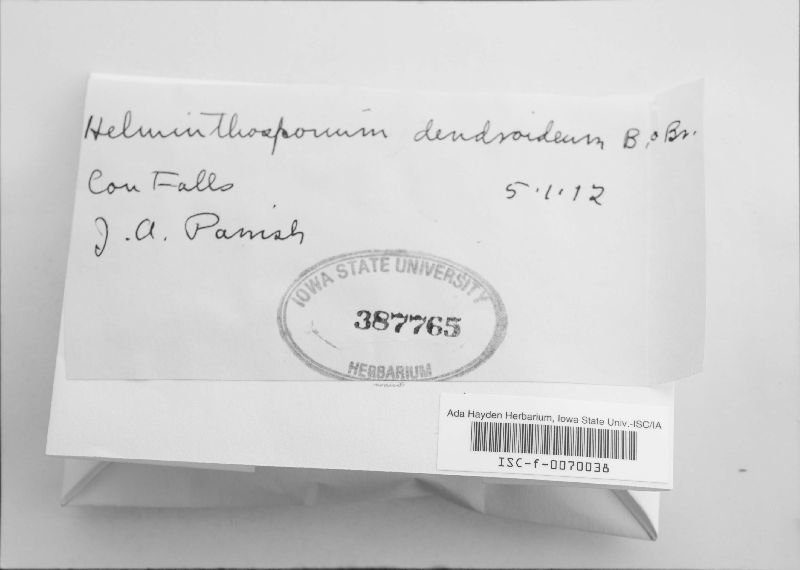 Helminthosporium dendroideum B. & Br.
Con Falls 5.1.12
J. A. Parrish
IOWA STATE UNIVERSITY
387765
HERBARIUM
Ada Hayden Herbarium, Iowa State Univ.-ISC/IA
ISC-f-0070038